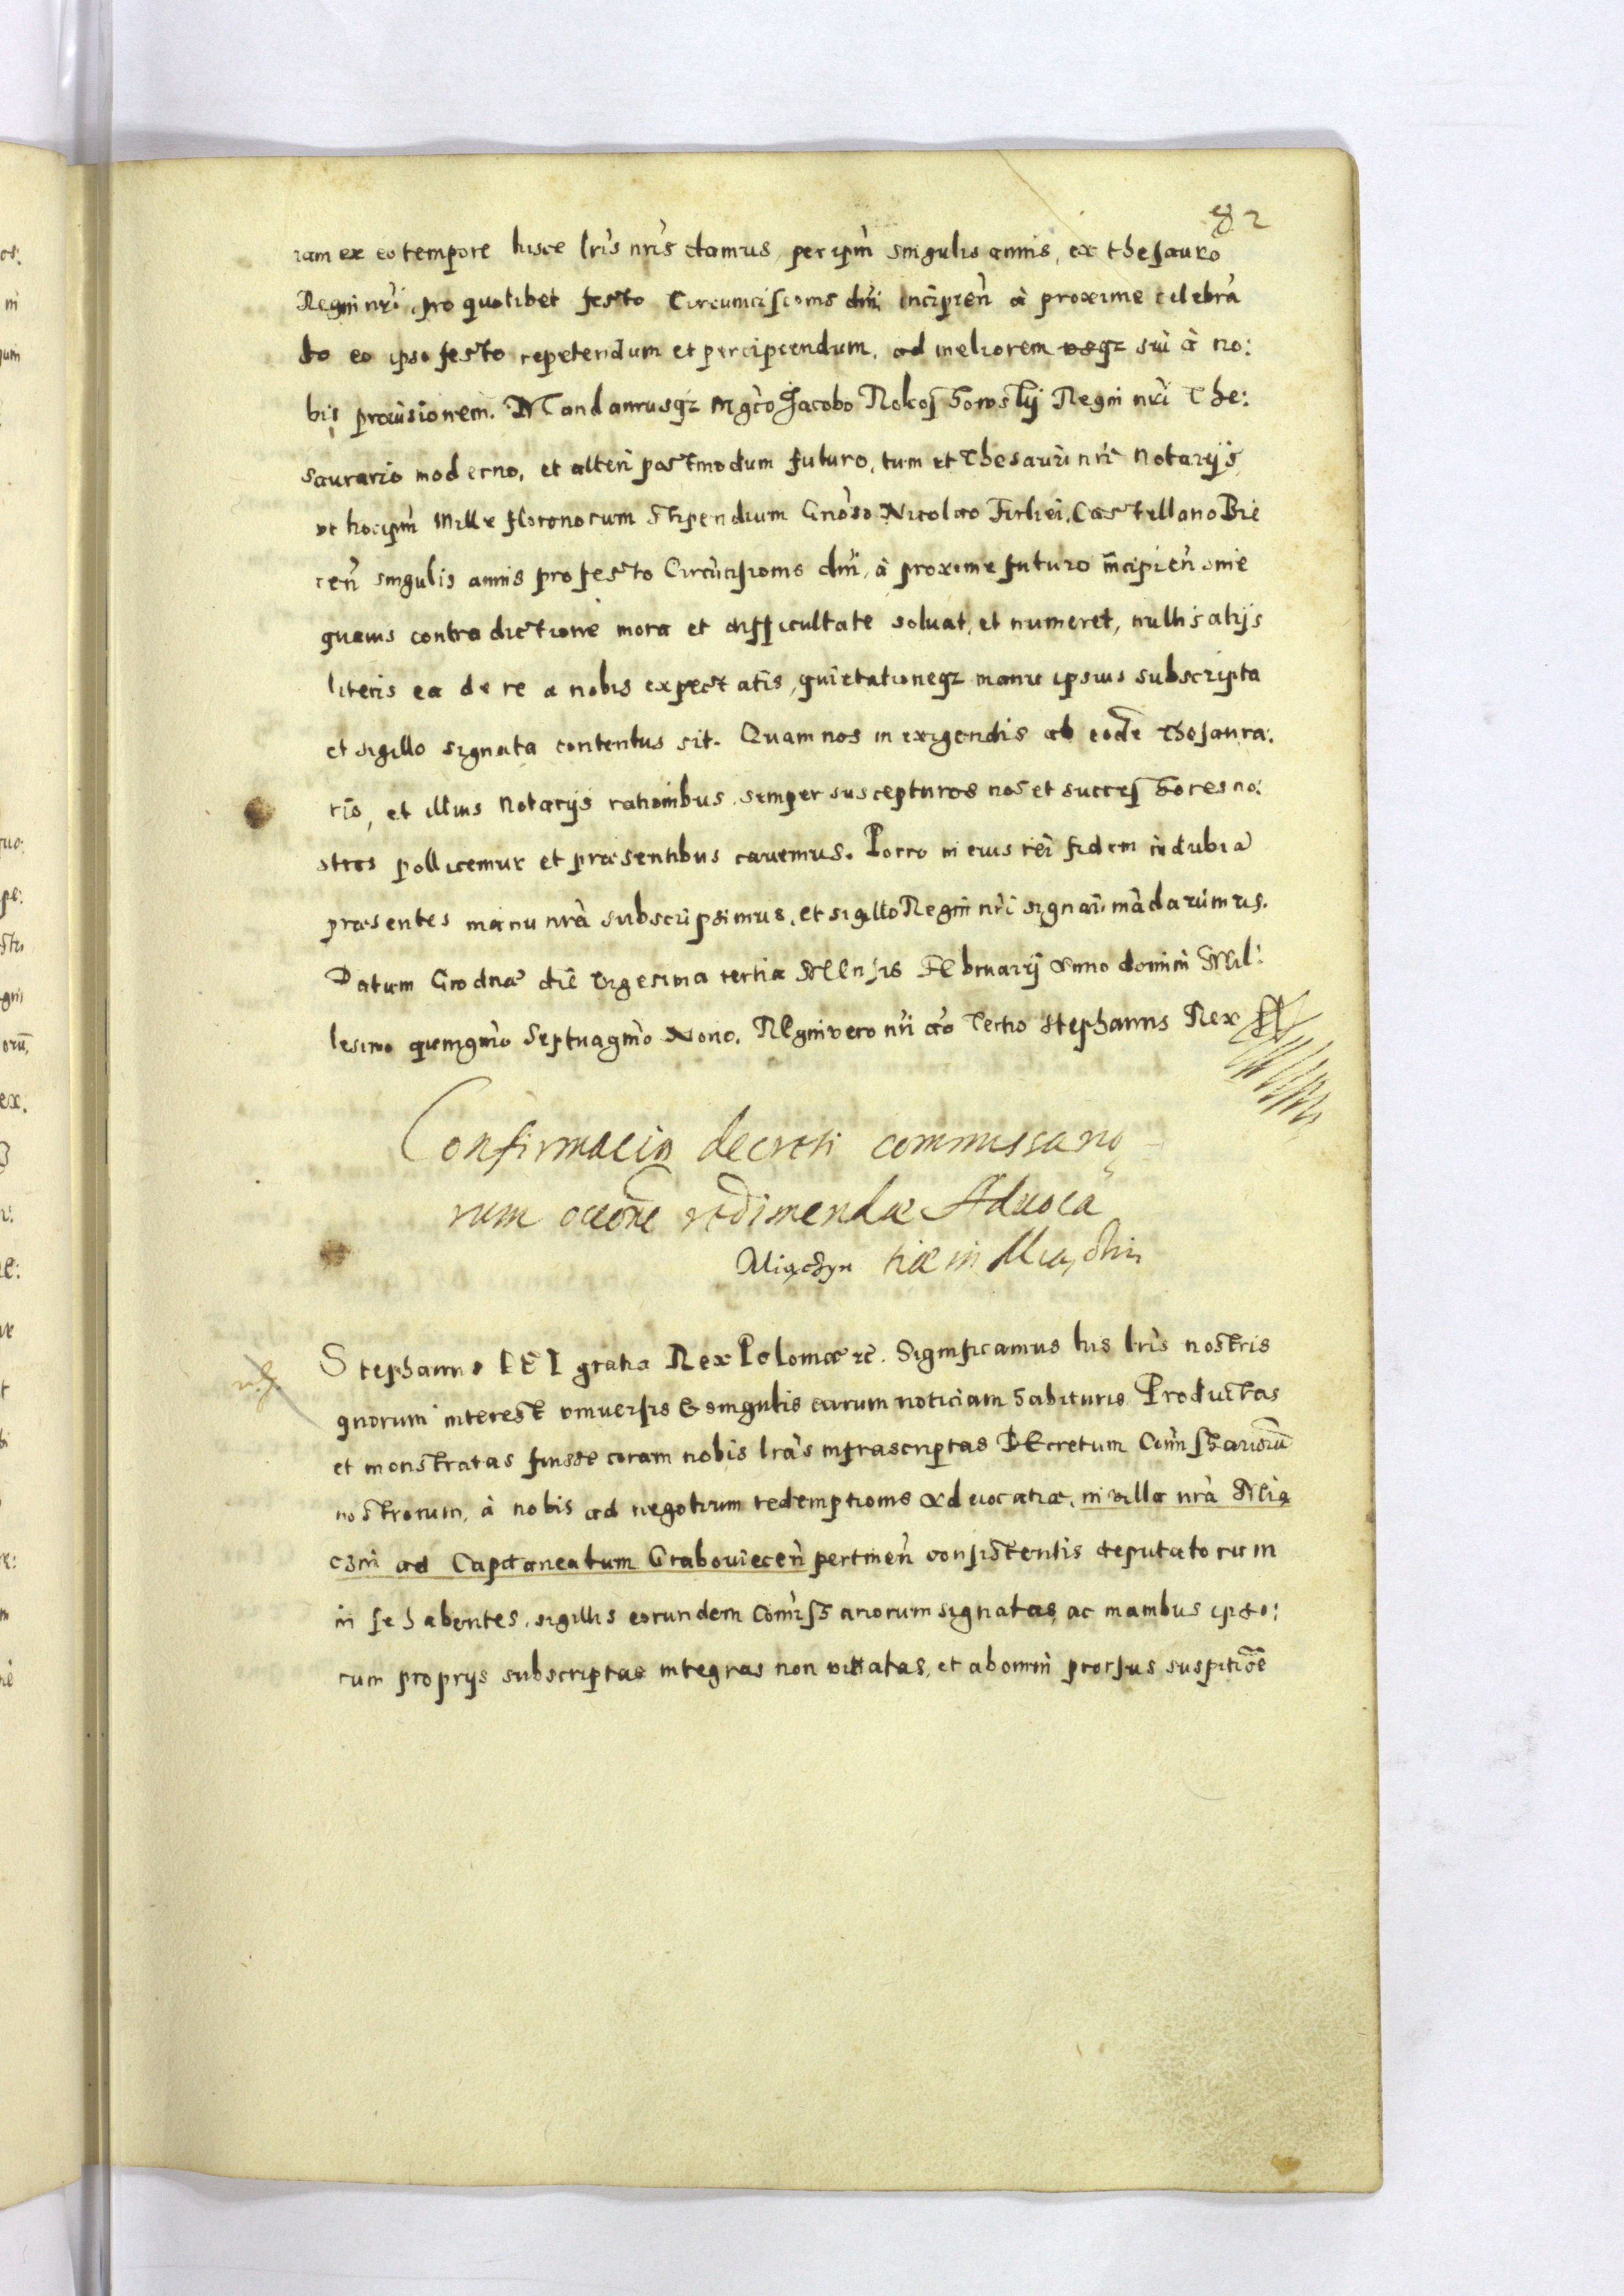 82
iam ex eo tempore hisce lr̃is nr̃is damus, per ipm̃ singulis annis, ex thesauro
Regni nr̃i, pro quolibet festo Circumcisionis dñi incipień à proxime celebra
to eo ipso festo repetendum et percipiendum, ad meliorem usqꝫ sui à no:
bis prouisionem. Mandamusqꝫ Mgco Jacobo Rokossowsky Regni nr̃i The:
saurario moderno, et alteri postmodum futuro, tum et Thesauri nr̃i Notarijs
vt hoc ipm̃ Mille florenorum Stipendium Gnoso Nicolao Firliei, Castellano Bie
ceń singulis annis pro festo Circucisionis dñi, à proxime futuro incipień sine
quauis contradictione mora et difficultate soluat, et numeret, nullis alijs
literis ea de re a nobis expectatis, quietationeqꝫ manu ipsius subscripta
et sigillo signata contentus sit. Quam nos in exigendis ab eode Thesaura:
rio, et illius Notarijs rationibus semper suscepturos nos et successores no:
stros pollicemur et præsentibus cauemus. Porro in eius rei fidem indubia
præsentes manu nrã subscripsimus, et sigillo Regni nr̃i signari madauimus.
Datum Grodnæ die vigesima tertia Mensis Februarij Anno domini Mil:
lesimo quingmo Septuagmo Nono. Regni vero nr̃i ao Tertio Stephanus Rex
Confirmacio decreti commissario
rum racõne redimendæ Aduoca
Miączyn tiæ in Miączin
Stephanus DEI gratia Rex Poloniæ ꝛc. Significamus his lr̃is nostris
quorum interest vniuersis & singulis earum noticiam habituris Productas
et monstratas fuisse coram nobis lrãs infrascriptas DEcretum Comissariorũ
nostrorum, à nobis ad negotium redemptionis aduocatiæ, in villa nrã Mią
czin ad Capitaneatum Grabowiecen̄ pertineń consistentis deputatorum
in se habentes, sigillis eorundem Comissariorum signatas, ac manibus ipso:
rum proprijs subscriptas integras non vitiatas, et ab omni prorsus suspitiõe